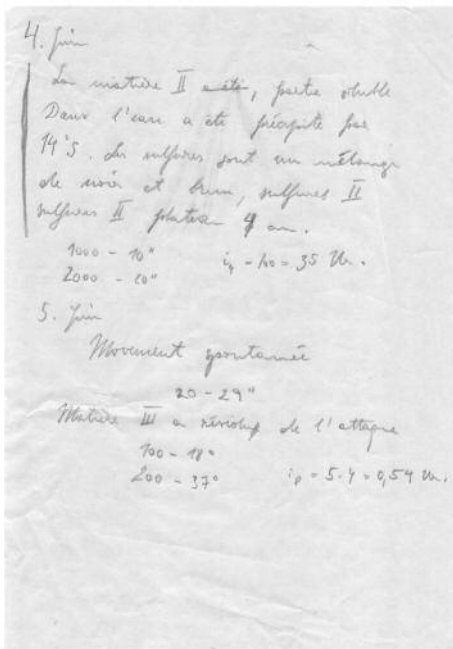 4. Juin
La matière II a été, partie soluble
Dans l'eau a été précipité par
H²S. Les sulfures sont un mélange
de noir et brun, sulfures II
sulfures II plateau 4 cm.
1000 - 10"
2000 - 20"
5. Juin
Movement spontanée
20 - 29"
Matière III a résidu de l'attaque
100 - 18"
200 - 37"